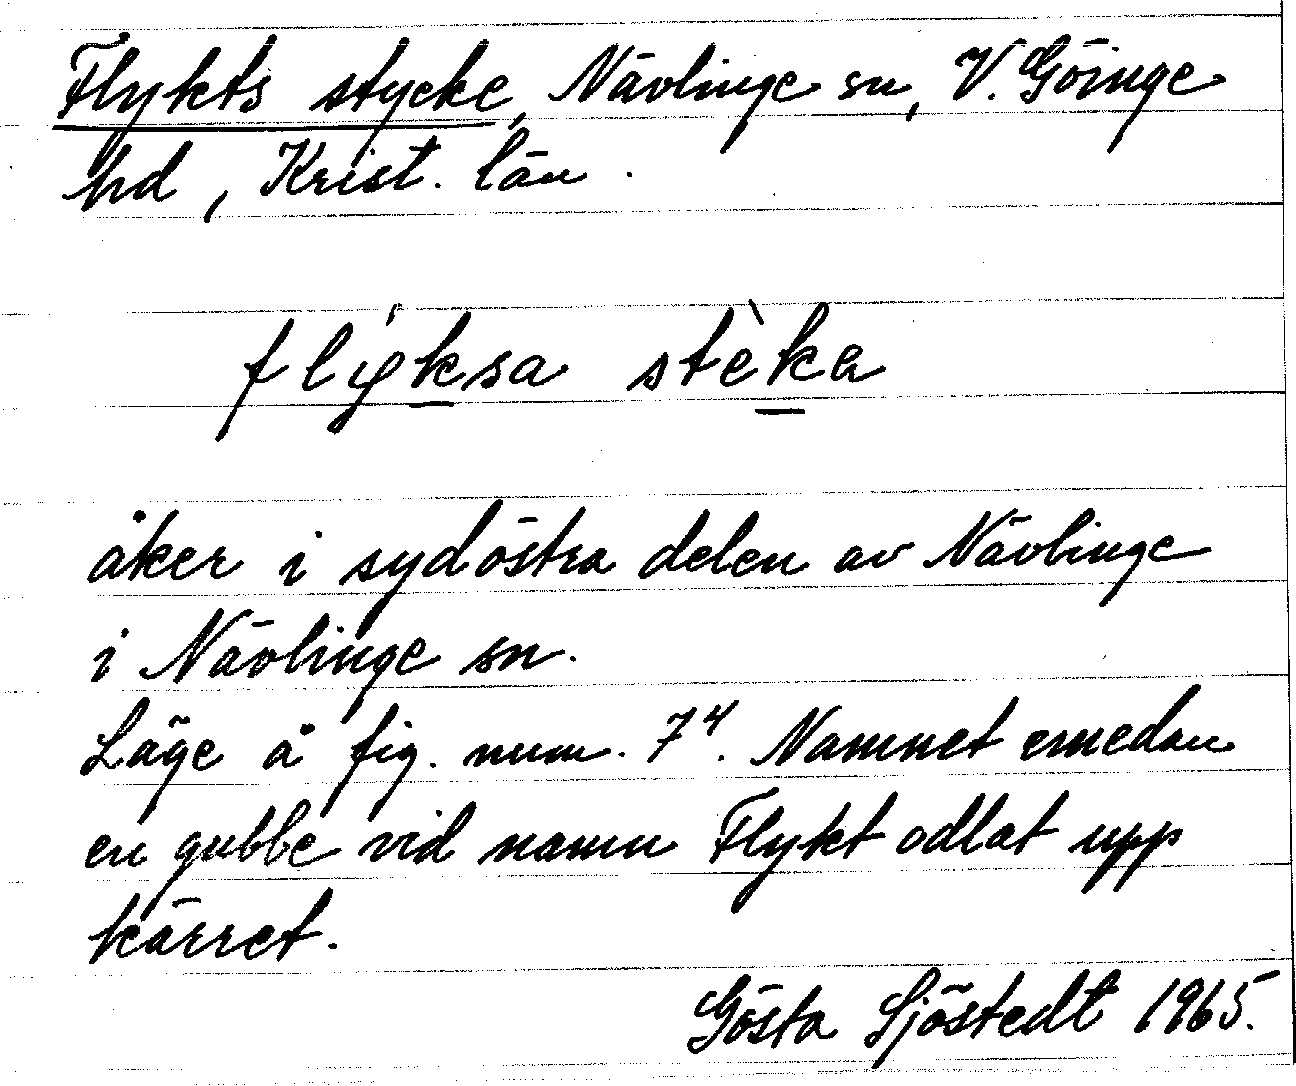 Flykts stycke, Nävlinge sn, V. Göinge
hd, Krist. län.
flýksa stèka
åker i sydöstra delen av Nävlinge
i Nävlinge sn.
Läge å fig. num. 74. Namnet emedan
en gubbe vid namn Flykt odlat upp
kärret.
Gösta Sjöstedt 1965.